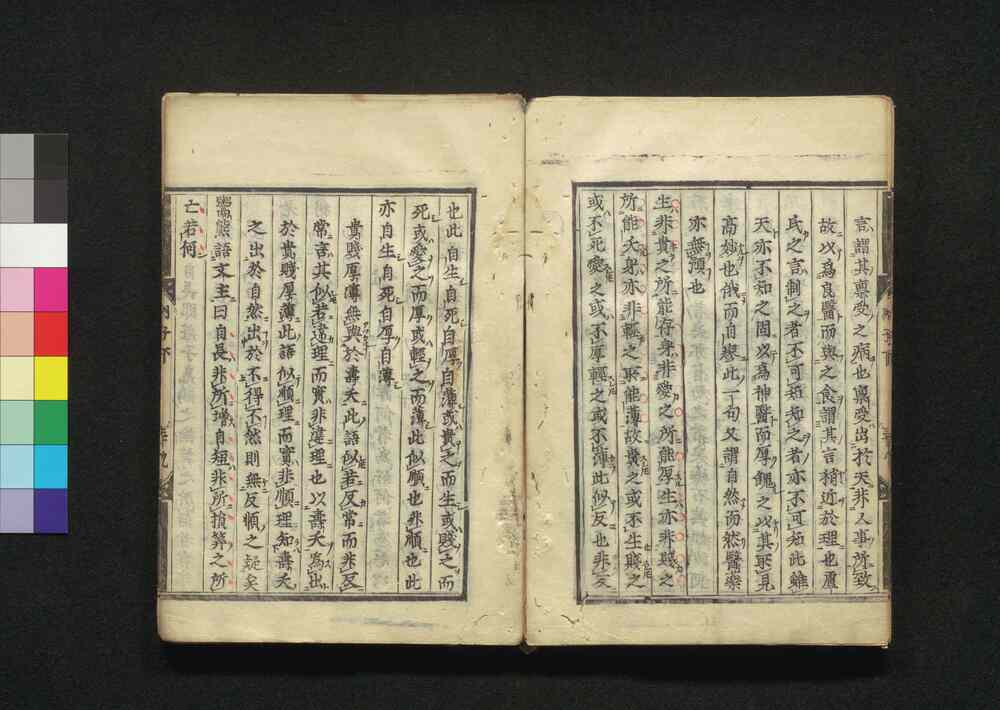 言謂其禀受之病也禀受出於天非人事所致
故以為良醫而與之食謂其言稍近於理也盧
氏之言制之者不可知知之者亦不可知此雖
天亦不知之固以為神醫而厚餽之以其所見
高妙也俄而自瘳此一句又謂自然而然醫藥
亦無預也
生非貴之所能存身非愛之所能厚生亦非賤之
所能夭身亦非輕之所能薄故貴之或不生賤之
或不死愛之或不厚輕之或不薄此似反也非反
也此自生自死自厚自薄或貴之而生或賤之而
死或愛之而厚或輕之而薄此似順也非順也此
亦自生自死自厚自薄
貴賤厚薄無與於壽夭此語似若反常而非反
常言其似若違理而實非違理也以壽夭為出
於貴賤厚薄此語似順理而實非順理知壽夭
之出於自然出於不得不然則無反順之疑矣
鬻熊語文王曰自長非所增自短非所損算之所
亡若何